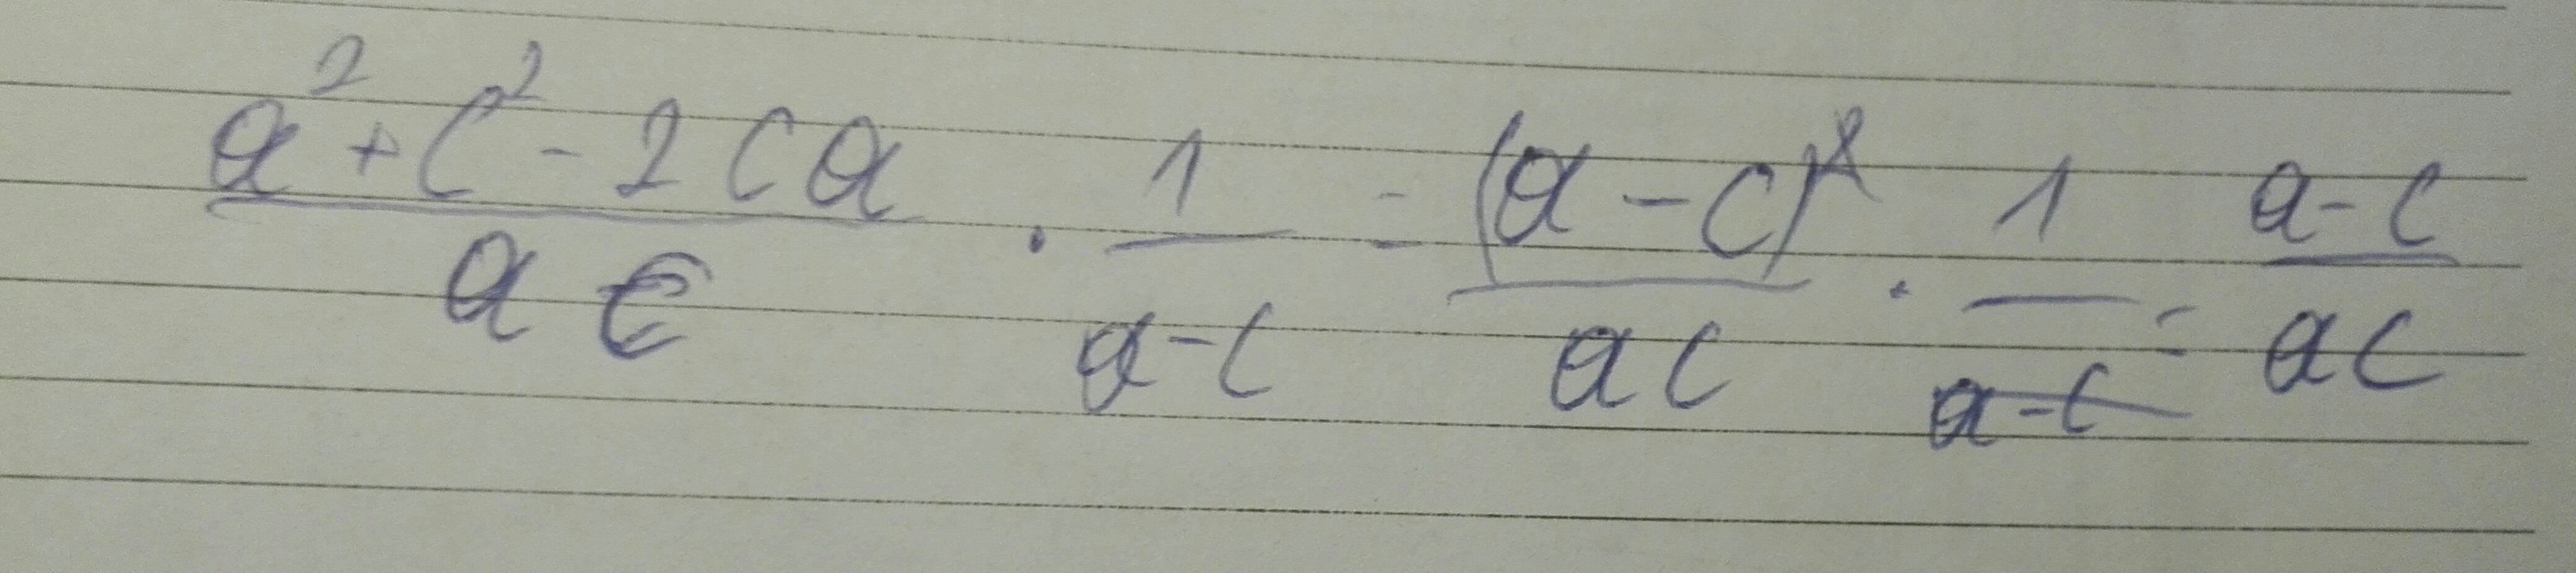 \frac{a^2+c^2-2ca}{ac} \cdot \frac{1}{a-c} = \frac{(a-c)^2}{ac} \cdot \frac{1}{a-c} = \frac{a-c}{ac}